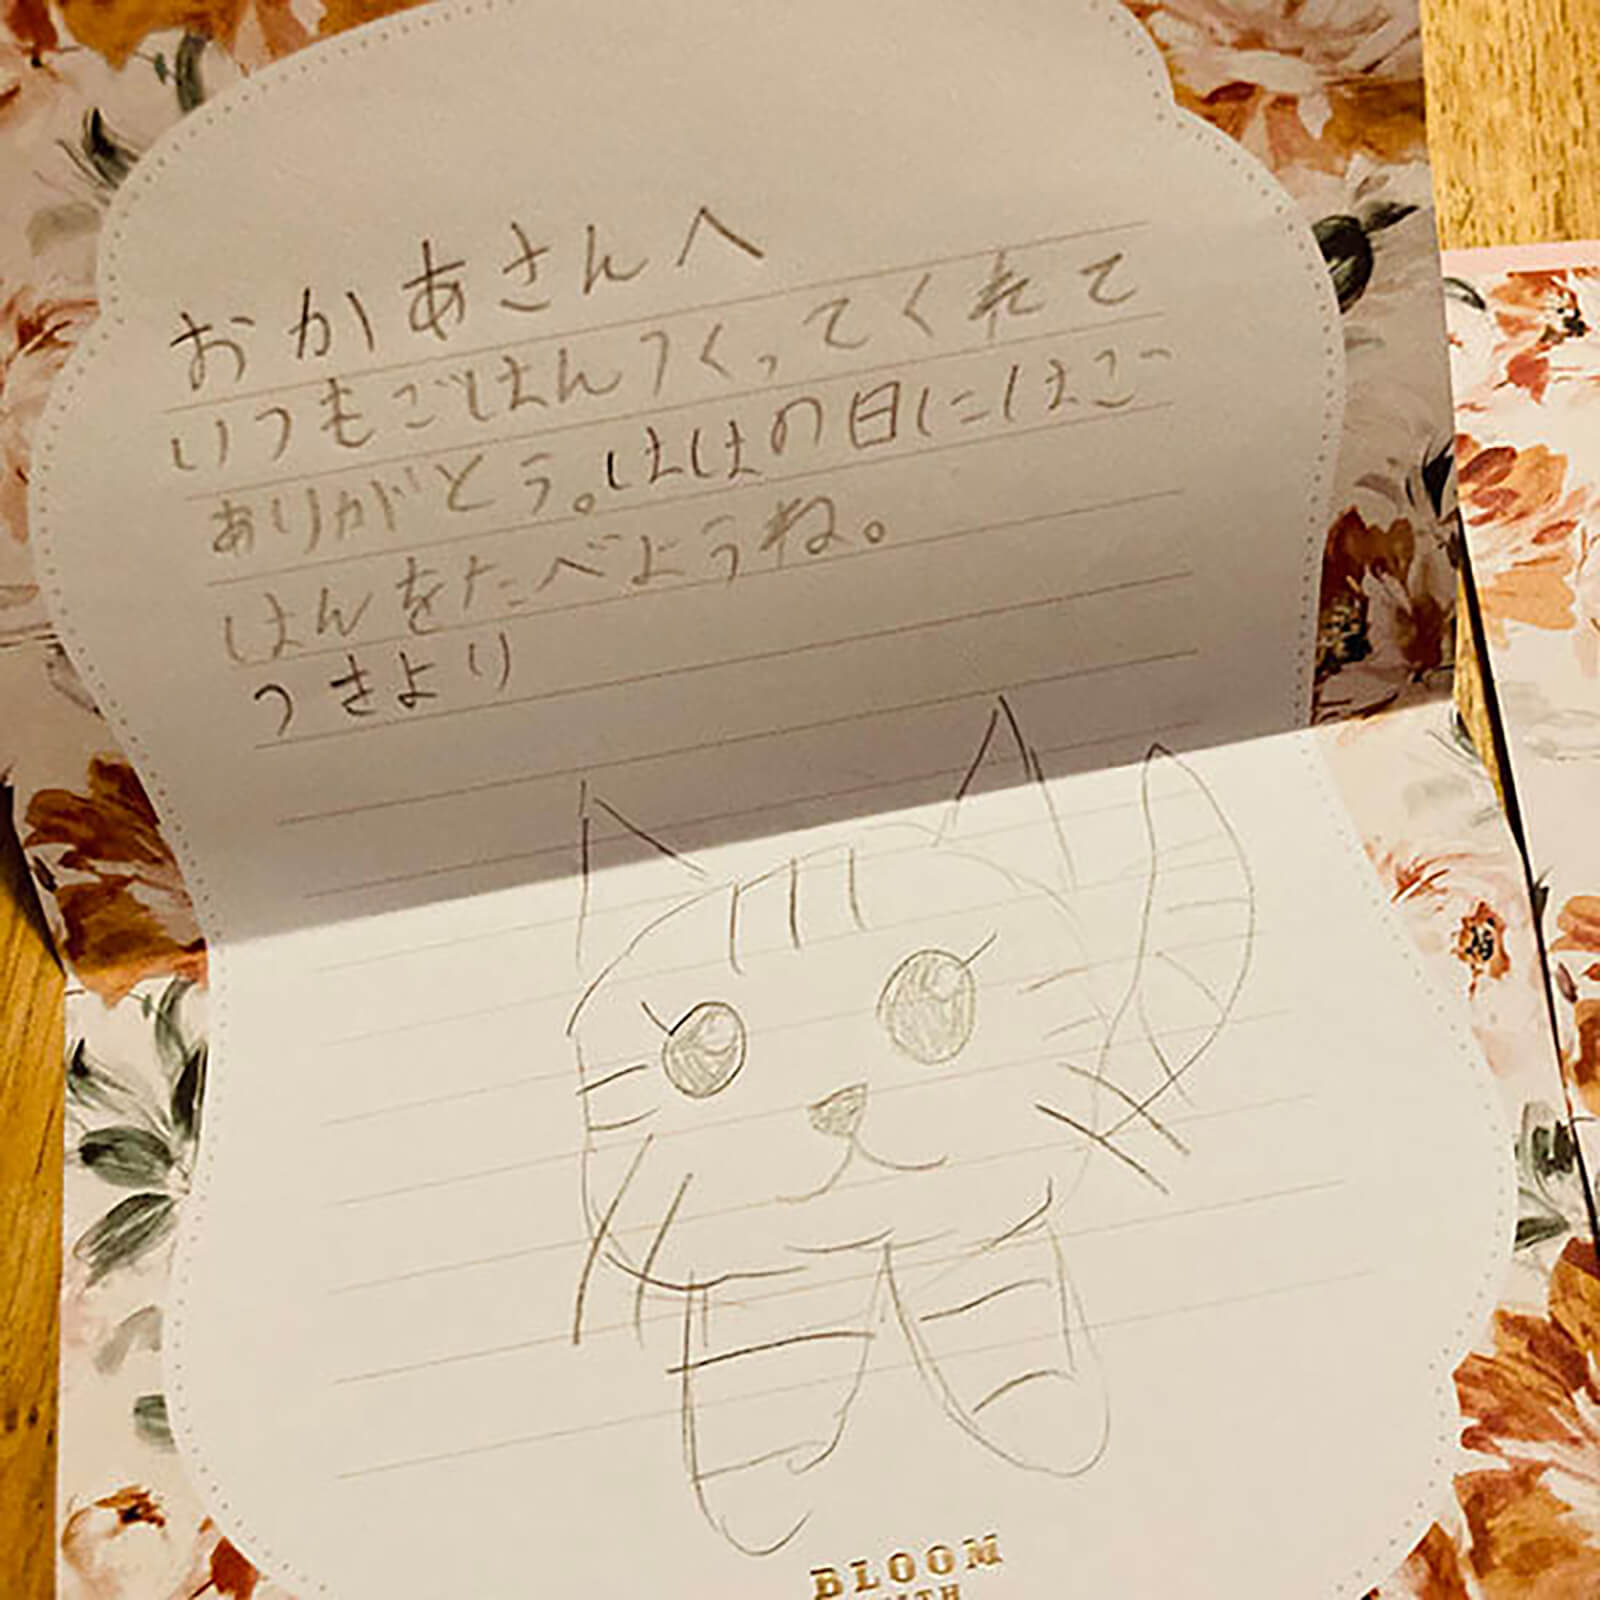 おかあさんへ
いつもごはんつくってくれて
ありがとう。ははの日にはご
はんをたべようね。
つきより
BLOOM
WITH